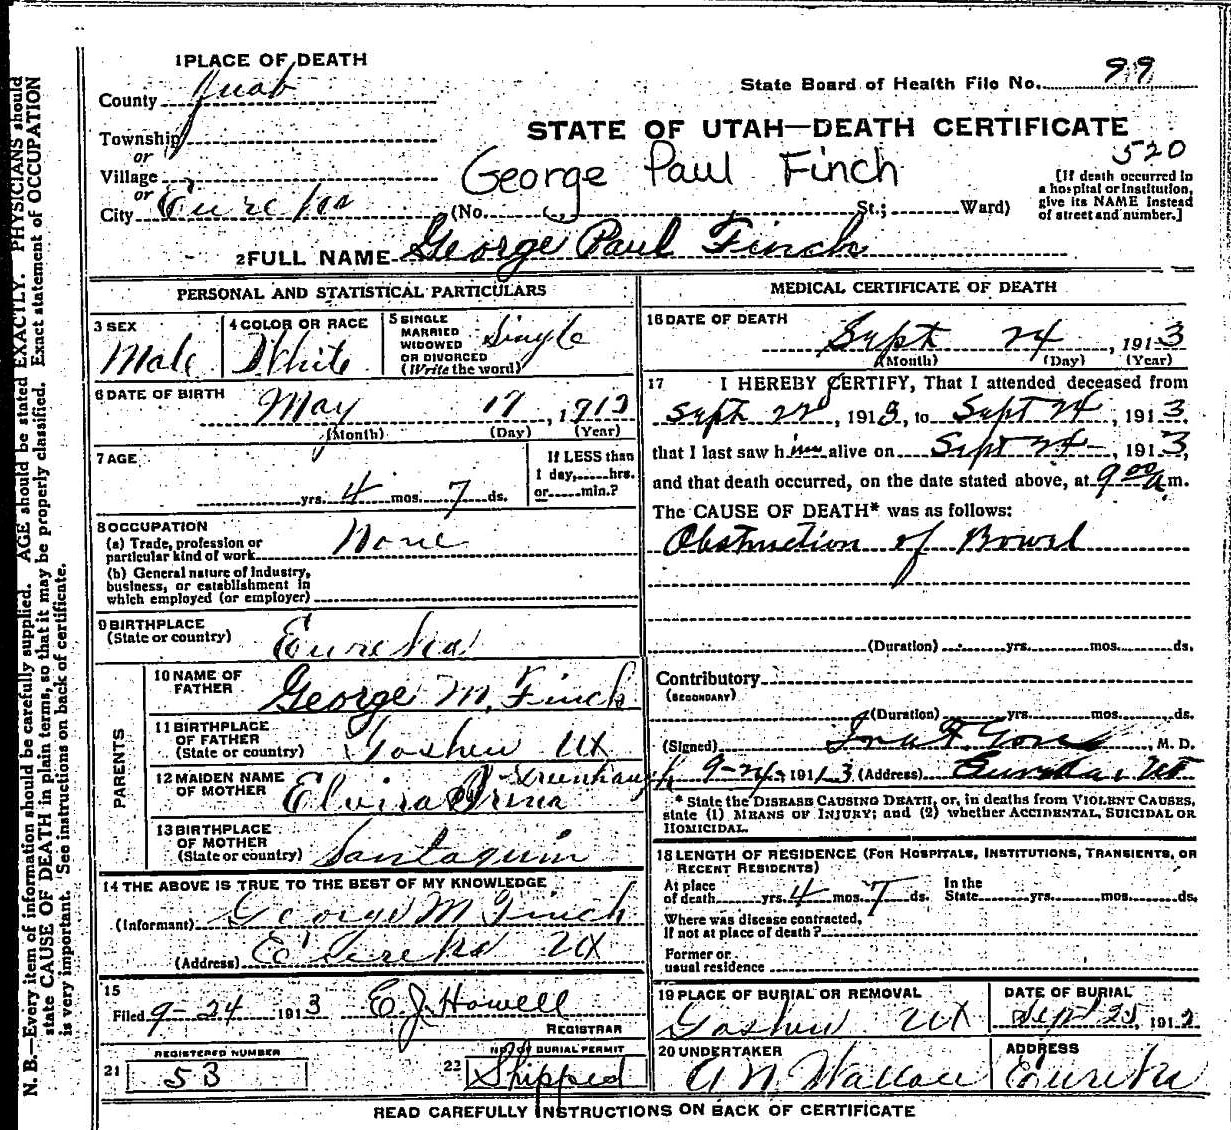 1 PLACE OF DEATH
County Juab
State Board of Health File No. 99
Township
or
Village
or
City Eureka
STATE OF UTAH—DEATH CERTIFICATE
520
George Paul Finch
(No. St.; Ward)
[If death occurred in
a hospital or institution,
give its NAME instead
of street and number.]
2 FULL NAME George Paul Finch
PERSONAL AND STATISTICAL PARTICULARS
3 SEX
Male
4 COLOR OR RACE
White
5 SINGLE
MARRIED
WIDOWED
OR DIVORCED
(Write the word)
Single
6 DATE OF BIRTH
May 17, 1913
(Month) (Day) (Year)
7 AGE
yrs. 4 mos. 7 ds.
If LESS than
1 day, hrs.
or min.?
8 OCCUPATION
(a) Trade, profession or
particular kind of work
None
(b) General nature of industry,
business, or establishment in
which employed (or employer)
9 BIRTHPLACE
(State or country)
Eureka
PARENTS
10 NAME OF
FATHER
George M. Finch
11 BIRTHPLACE
OF FATHER
(State or country)
Goshen Ut
12 MAIDEN NAME
OF MOTHER
Elvira Greenhaugh
13 BIRTHPLACE
OF MOTHER
(State or country)
Santaquin
14 THE ABOVE IS TRUE TO THE BEST OF MY KNOWLEDGE
(Informant) George M Finch
(Address) Eureka Ut
15
Filed 9-24 1913 E.J. Howell
REGISTRAR
REGISTERED NUMBER
21 53
NO. OF BURIAL PERMIT
22 Shipped
MEDICAL CERTIFICATE OF DEATH
16 DATE OF DEATH
Sept 24, 1913
(Month) (Day) (Year)
17 I HEREBY CERTIFY, That I attended deceased from
Sept 22, 1913, to Sept 24, 1913,
that I last saw him alive on Sept 24, 1913,
and that death occurred, on the date stated above, at 9 00 a m.
The CAUSE OF DEATH* was as follows:
Obstruction of Bowel
(Duration) yrs. mos. ds.
Contributory
(SECONDARY)
(Duration) yrs. mos. ds.
(Signed) M. D.
9-24- 1913 (Address) Eureka, Ut
* State the DISEASE CAUSING DEATH, or, in deaths from VIOLENT CAUSES,
state (1) MEANS OF INJURY; and (2) whether ACCIDENTAL, SUICIDAL OR
HOMICIDAL.
18 LENGTH OF RESIDENCE (FOR HOSPITALS, INSTITUTIONS, TRANSIENTS, OR
RECENT RESIDENTS)
At place
of death yrs. 4 mos. 7 ds.
In the
State yrs. mos. ds.
Where was disease contracted,
If not at place of death?
Former or
usual residence
19 PLACE OF BURIAL OR REMOVAL
Goshen Ut
DATE OF BURIAL
Sept 25, 191
20 UNDERTAKER
A N Wallace
ADDRESS
Eureka
READ CAREFULLY INSTRUCTIONS ON BACK OF CERTIFICATE
N. B.—Every item of information should be carefully supplied. AGE should be stated EXACTLY. PHYSICIANS should
state CAUSE OF DEATH in plain terms, so that it may be properly classified. Exact statement of OCCUPATION
is very important. See instructions on back of certificate.